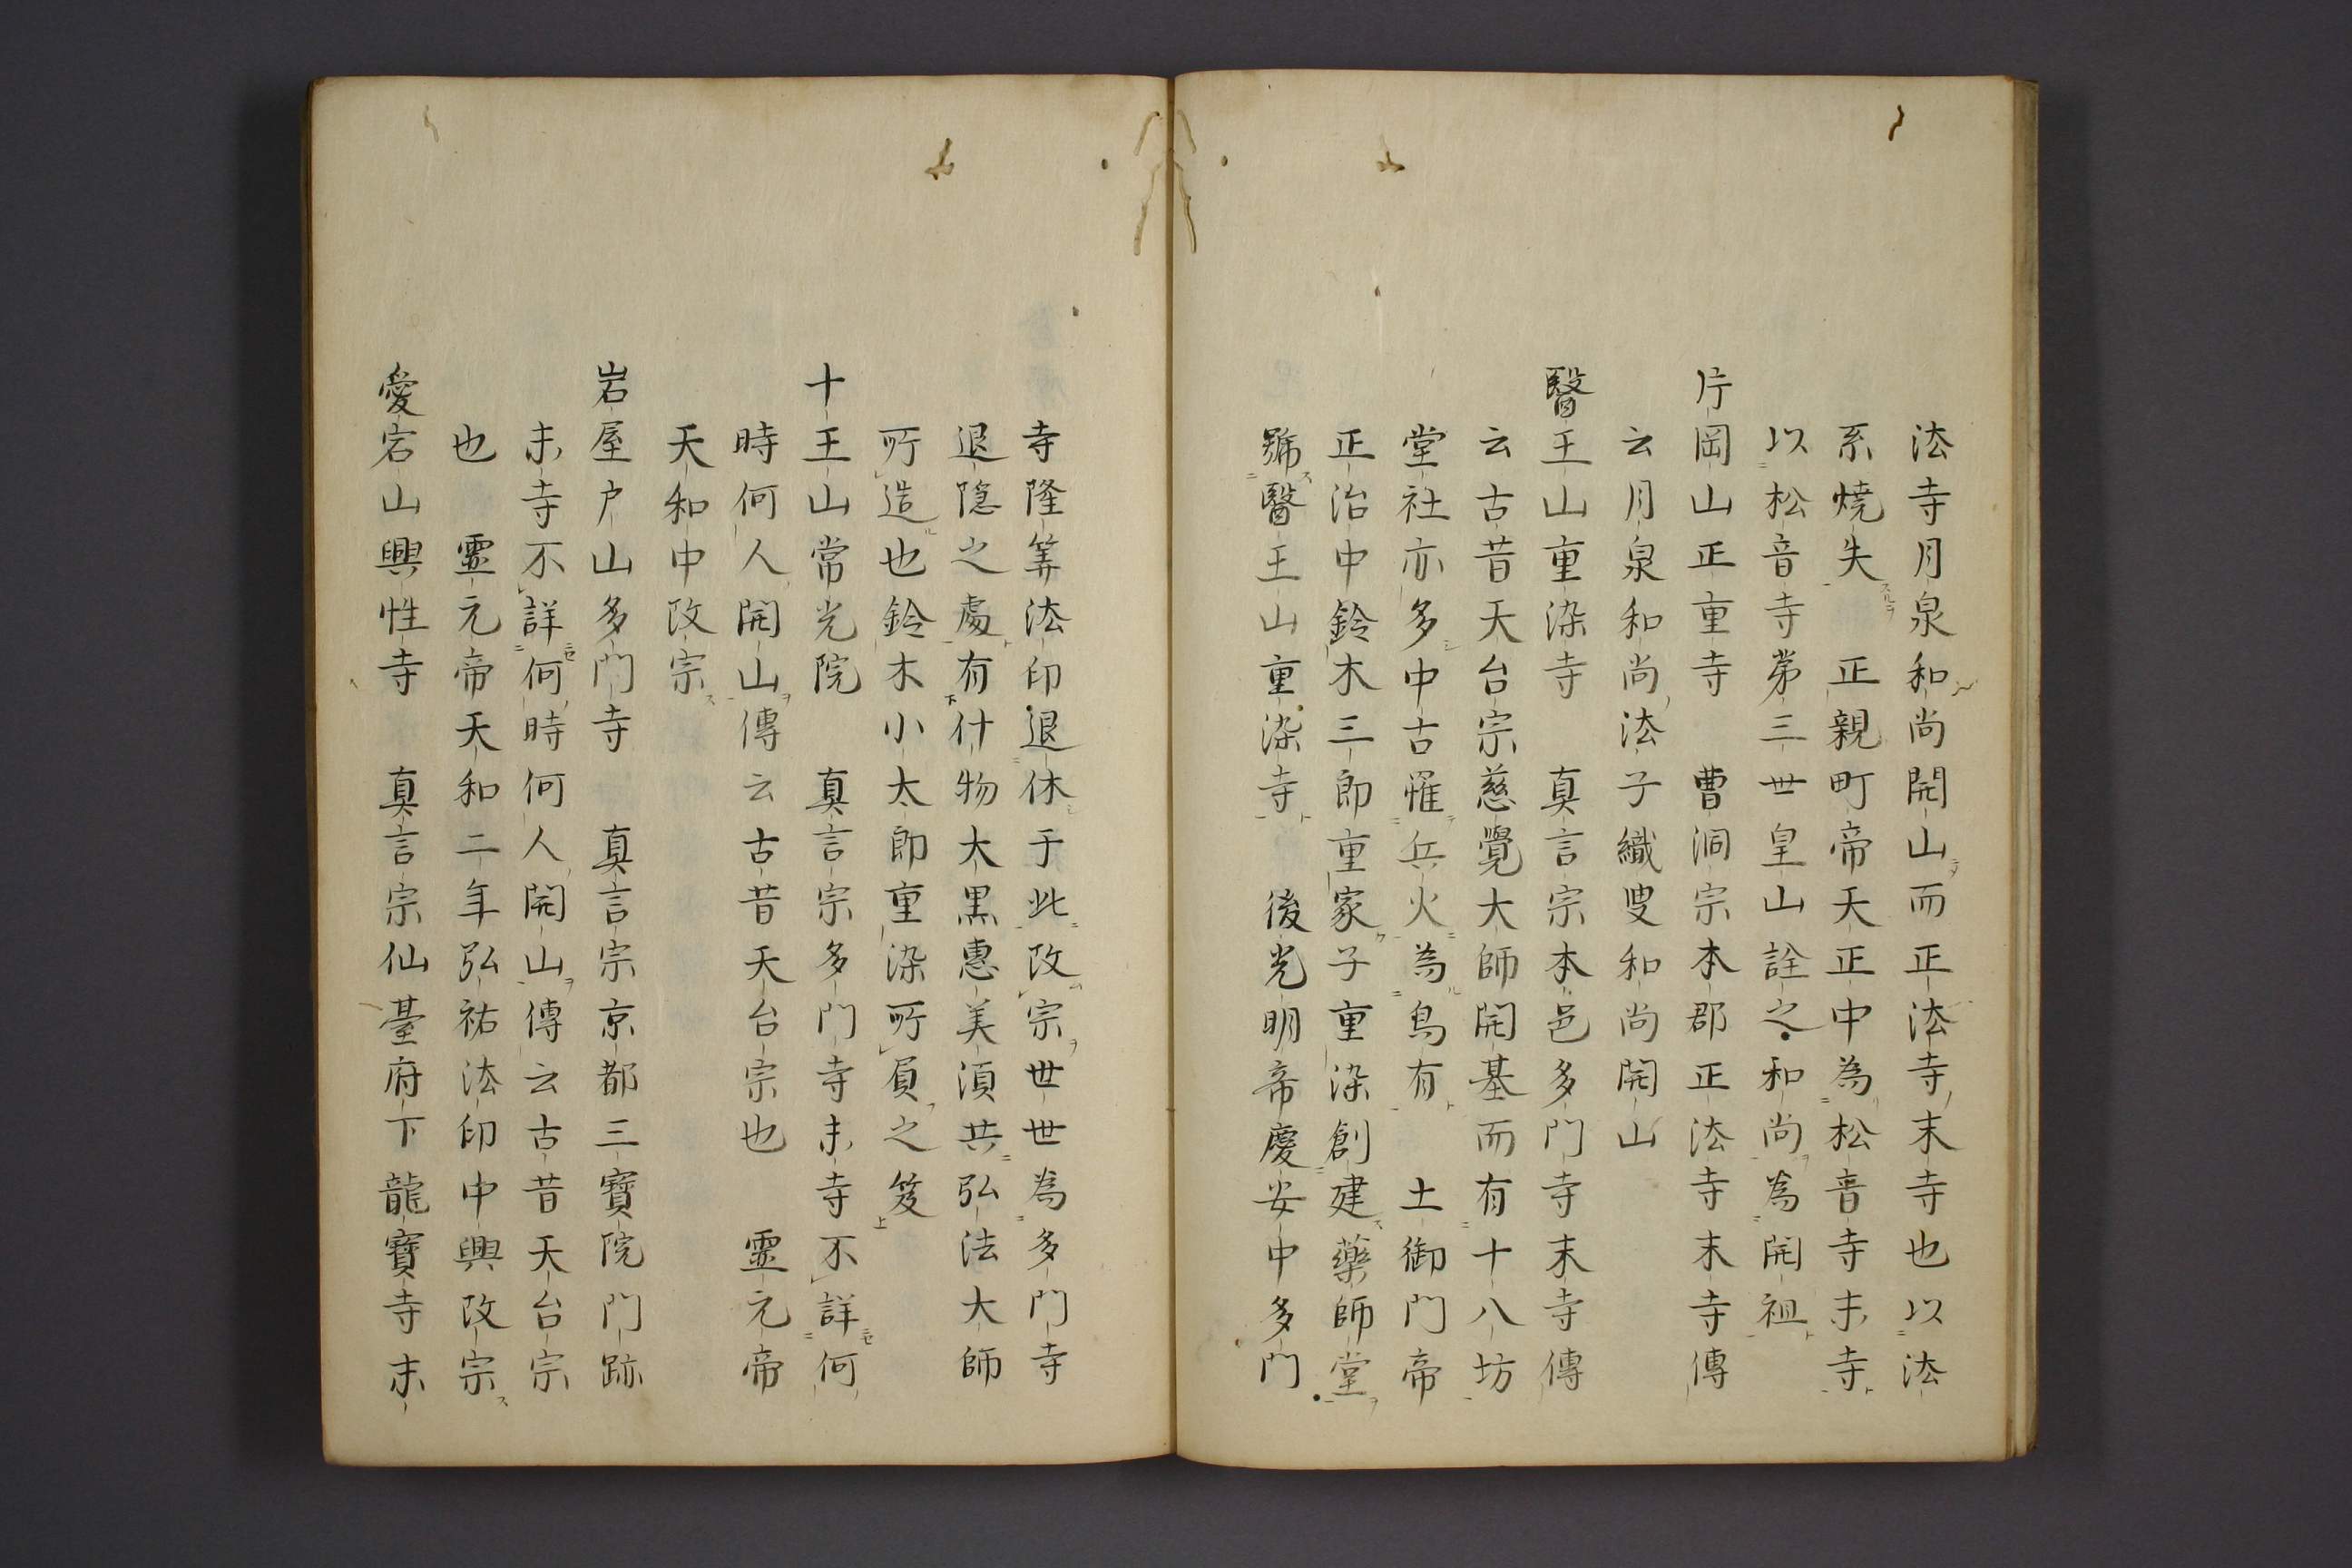 法寺月泉和尚開山而正法寺末寺也以法
系焼失　正親町帝天正中為松音寺末寺
以松音寺第三世皇山詮之和尚為開祖
片岡山正重寺　曹洞宗本郡正法寺末寺傳
云月泉和尚法子織叟和尚開山
醫王山重染寺　真言宗本邑多門寺末寺傳
云古昔天台宗慈覺大師開基而有十八坊
堂社亦多中古罹兵火為烏有　土御門帝
正治中鈴木三郎重家子重染創建藥師堂
號醫王山重染寺　後光明帝慶安中多門
寺隆筭法印退休于此改宗世世為多門寺
退隐之處有什物大黒惠美湏共弘法大師
所造也鈴木小太郎重染所負之笈
十王山常光院　真言宗多門寺末寺不詳何
時何人開山傳云古昔天台宗也　靈元帝
天和中改宗
岩屋户山多門寺　真言宗京都三寶院門跡
末寺不詳何時何人開山傳云古昔天台宗
也　靈元帝天和二年弘祐法印中興改宗
愛宕山興性寺　真言宗仙臺府下龍寶寺末